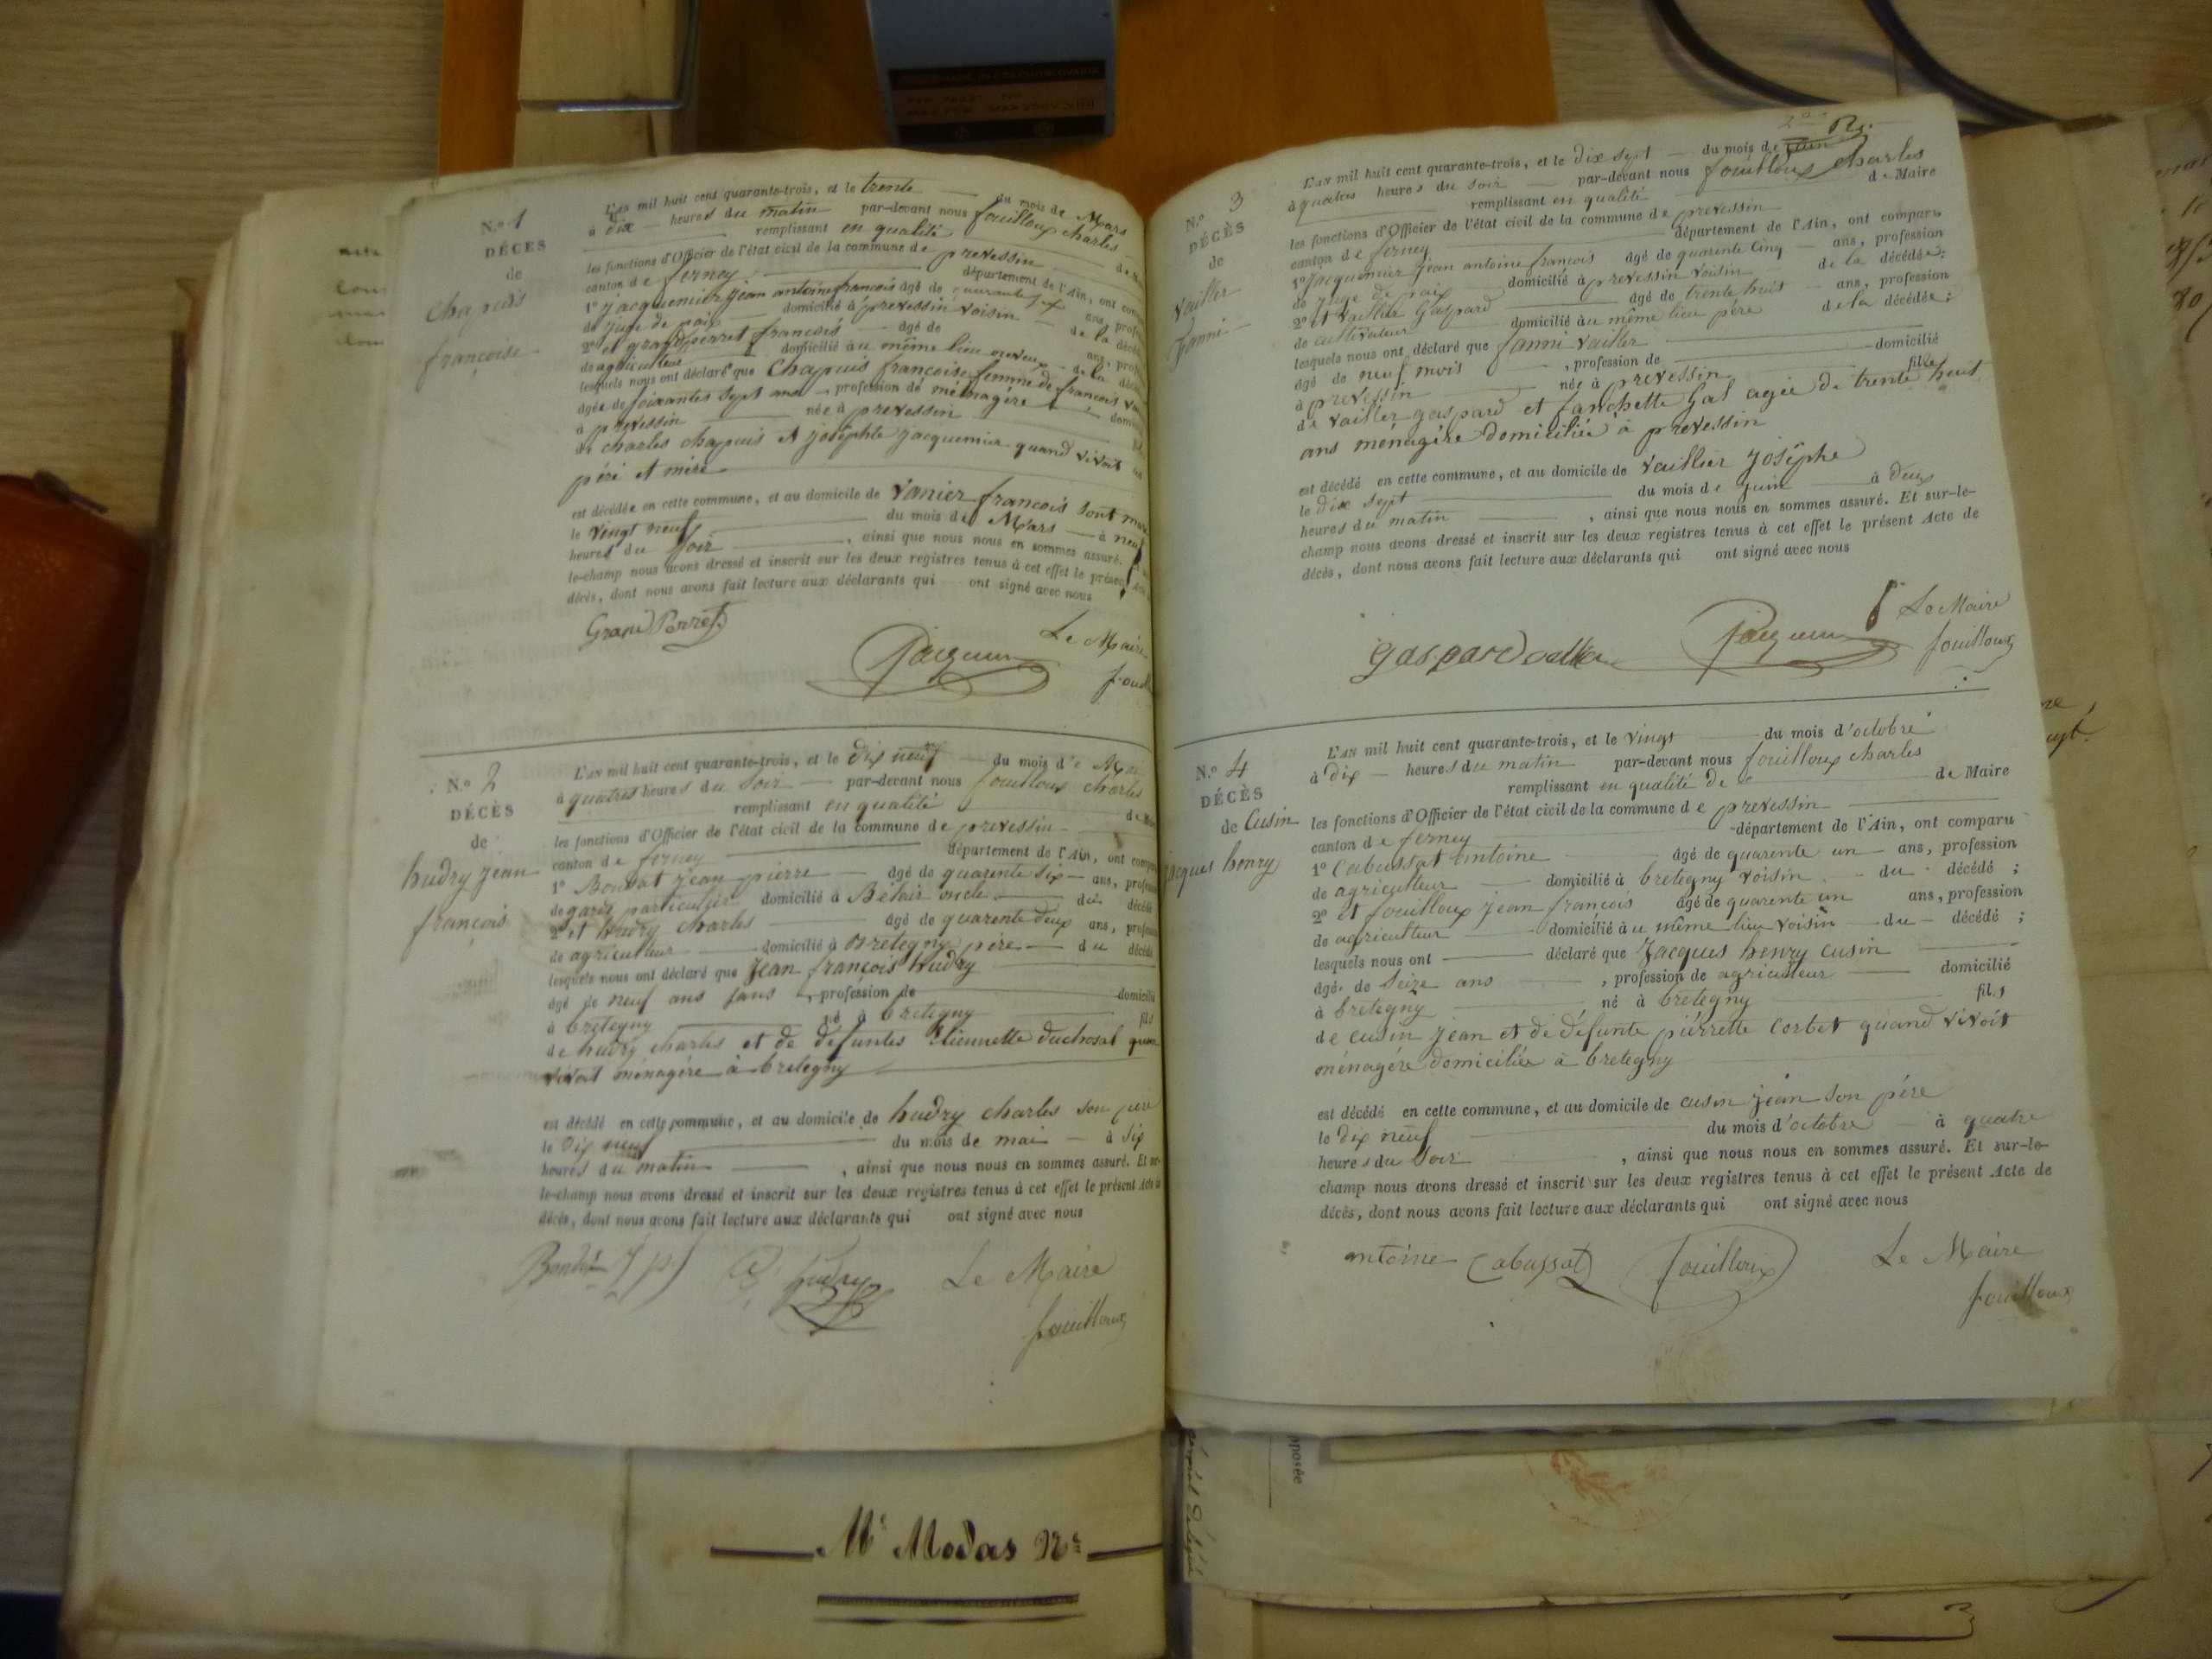 N.º 1
DÉCÈS
de
chapuis
françoise
L'AN mil huit cent quarante-trois, et le trente du mois de Mars
à dix heures du matin par-devant nous fouilloux charles
remplissant en qualité
les fonctions d'Officier de l'état civil de la commune de prevessin
canton de ferney département de l'Ain, ont
1º jacquemier jean antoine francois âgé de
de juge de paix domicilié à prevessin voisin de la
2º et grandperret francois âgé de ans,
de agriculteur domicilié au même lieu neveux de la
lesquels nous ont déclaré que Chapuis françoise femme de francois
âgée de soixantes sept ans, profession de ménagère
à prevessin née à prevessin
de charles chapuis et joséphte jacquemier quand vivoit
père et mère
est décédée en cette commune, et au domicile de vanier francois sont
le vingt neuf du mois de Mars à neuf
heures du soir, ainsi que nous nous en sommes assuré.
le-champ nous avons dressé et inscrit sur les deux registres tenus à cet effet le présent
décès, dont nous avons fait lecture aux déclarants qui ont signé avec nous
Grand Perret
Le Maire
N.º 2
DÉCÈS
de
hudry jean
françois
L'AN mil huit cent quarante-trois, et le dix neuf du mois de
à quatres heures du soir par-devant nous fouilloux charles
remplissant en qualité
les fonctions d'Officier de l'état civil de la commune de prevessin
canton de ferney département de l'Ain, ont
1º jean pierre âgé de quarente six ans,
de garde particulier domicilié à Belair oncle du décédé
2º et hudry charles âgé de quarente deux ans,
de agriculteur domicilié à Bretegny père du décédé
lesquels nous ont déclaré que jean françois hudry
âgé de neuf ans sans profession de domicilié
à bretegny né à bretegny fils
de hudry charles et de defuntes Etiennette duchosal
vivoit ménagére à bretegny
est décédé en cette commune, et au domicile de hudry charles son père
le dix neuf du mois de mai à six
heures du matin, ainsi que nous nous en sommes assuré. Et
le-champ nous avons dressé et inscrit sur les deux registres tenus à cet effet le présent Acte
décès, dont nous avons fait lecture aux déclarants qui ont signé avec nous
hudry Le Maire
fouilloux
Mᵉ Modas Nʳᵉ
N.º 3
DÉCÈS
de
vailler
fanni
L'AN mil huit cent quarante-trois, et le dix sept du mois de juin
à quatres heures du soir par-devant nous fouilloux charles
remplissant en qualité de Maire
les fonctions d'Officier de l'état civil de la commune de prevessin
canton de ferney département de l'Ain, ont comparu
1º jacquemier jean antoine francois âgé de quarente cinq ans, profession
de juge de paix domicilié à prevessin voisin de la décédée;
2º et vailler Gaspard âgé de trente huit ans, profession
de cultivateur domicilié au même lieu père de la décédée;
lesquels nous ont déclaré que fanni vailler
âgé de neuf mois, profession de domicilié
à prevessin née à prevessin fille
de vailler gaspard et fanchette gal agée de trente huit
ans ménagére domiciliée à prevessin
est décédé en cette commune, et au domicile de vaillier joséphe
le dix sept du mois de juin à deux
heures du matin, ainsi que nous nous en sommes assuré. Et sur-le-
champ nous avons dressé et inscrit sur les deux registres tenus à cet effet le présent Acte de
décès, dont nous avons fait lecture aux déclarants qui ont signé avec nous
Le Maire
gaspard fouilloux
N.º 4
DÉCÈS
de Cusin
jacques henry
L'AN mil huit cent quarante-trois, et le vingt du mois d'octobre
à dix heures du matin par-devant nous fouilloux charles
remplissant en qualité de de Maire
les fonctions d'Officier de l'état civil de la commune de prevessin
canton de ferney département de l'Ain, ont comparu
1º Cabussat antoine âgé de quarente un ans, profession
de agriculteur domicilié à bretegny voisin du décédé;
2º et fouilloux jean francois âgé de quarente un ans, profession
de agriculteur domicilié au même lieu voisin du décédé;
lesquels nous ont déclaré que Jacques henry cusin
âgé de seize ans, profession de agriculteur domicilié
à bretegny né à bretegny fils
de cusin jean et de défunte piérrette corbet quand vivoit
ménagére domiciliée à bretegny
est décédé en cette commune, et au domicile de cusin jean son père
le dix neuf du mois d'octobre à quatre
heures du soir, ainsi que nous nous en sommes assuré. Et sur-le-
champ nous avons dressé et inscrit sur les deux registres tenus à cet effet le présent Acte de
décès, dont nous avons fait lecture aux déclarants qui ont signé avec nous
antoine Cabussat fouilloux Le Maire
fouilloux